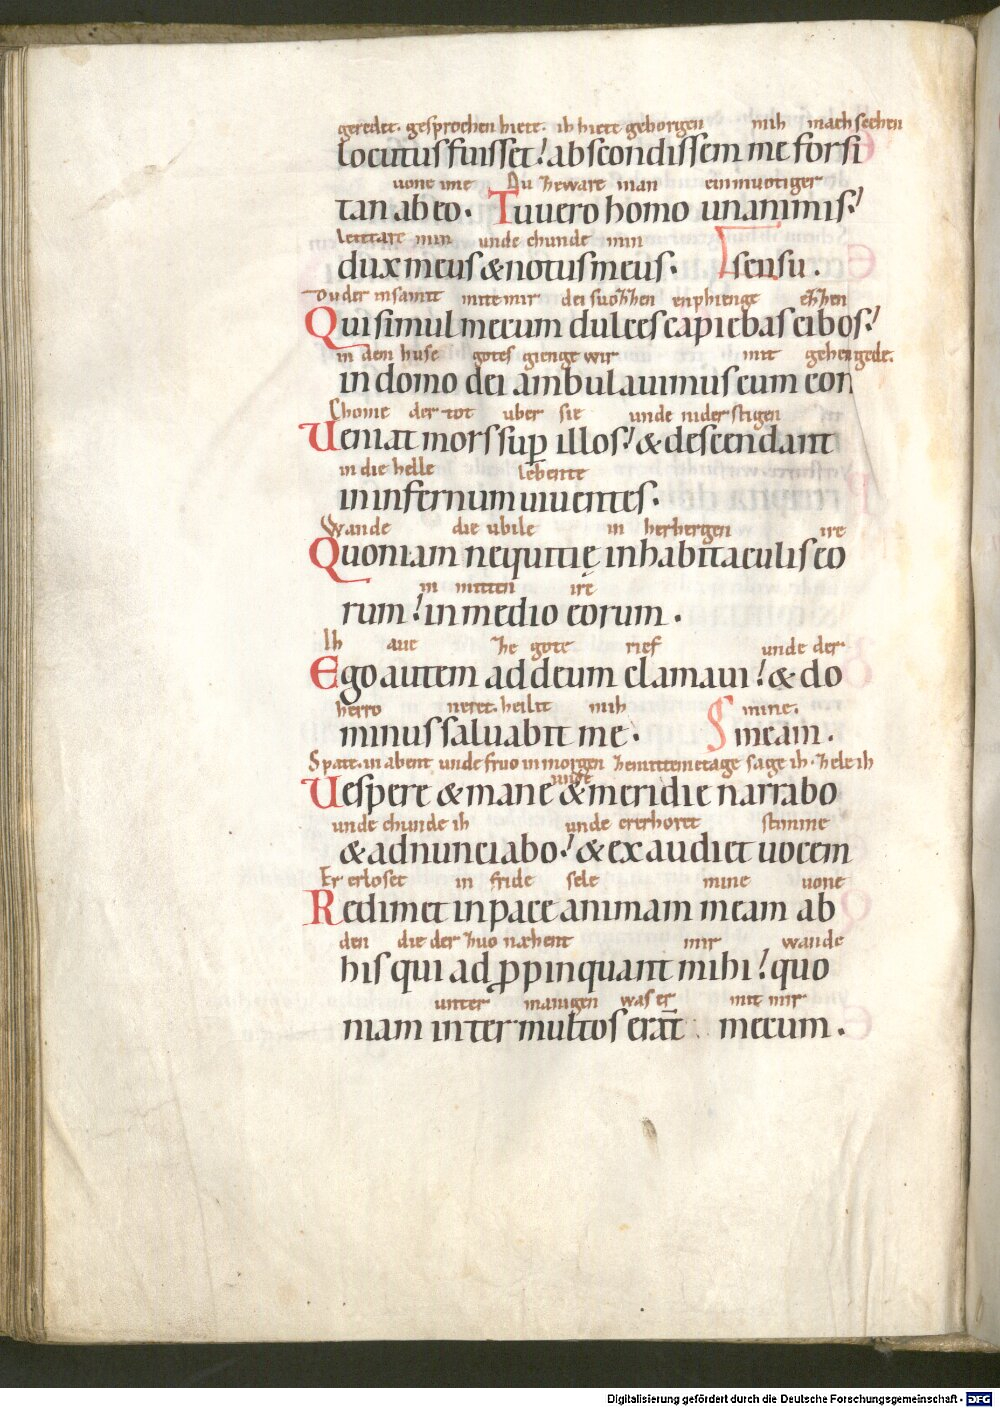 geredet. gesprochen hiett. ih hiete geborgen mih mach sechen
locutus fuisset! abscondissem me forsi
uone ime Du zeware man einmuotiger
tan ab eo. Tu uero homo unanimis!
leitare min unde chunde min
dux meus & notus meus. sensu.
Du der insamtt mite mir die suozzen enphienge ezzen
Qui simul mecum dulces capiebas cibos!
in dem huse gotes gienge wir mit gehengede.
in domo dei ambulauimus cum con
Chome der tot uber sie unde nider stigen
Ueniat mors sup illos! & descendant
in die helle lebente
in infernum uiuentes.
Wande die ubile in herbergen ire
Quoniam nequitię in habitaculis eo
in mitten ire
rum! in medio eorum.
Ih aue ze gote rief unde der
Ego autem ad deum clamaui! & do
herro neret. heilit mih mine.
minus saluabit me. meam.
Spate. in abent unde fruo in morgen ze mittemetage sage ih. zele ih
unde
Uespere & mane & meridie narrabo
unde chunde ih unde ererhoret stimme
& adnunciabo! & exaudiet uocem
Er erloset in fride sele mine uone
Redimet in pace animam meam ab
den die der zuo næhent mir wande
his qui ad ppinquant mihi! quo
unter manigen was er mit mir
niam inter multos erat mecum.
Digitalisierung gefördert durch die Deutsche Forschungsgemeinschaft - DFG